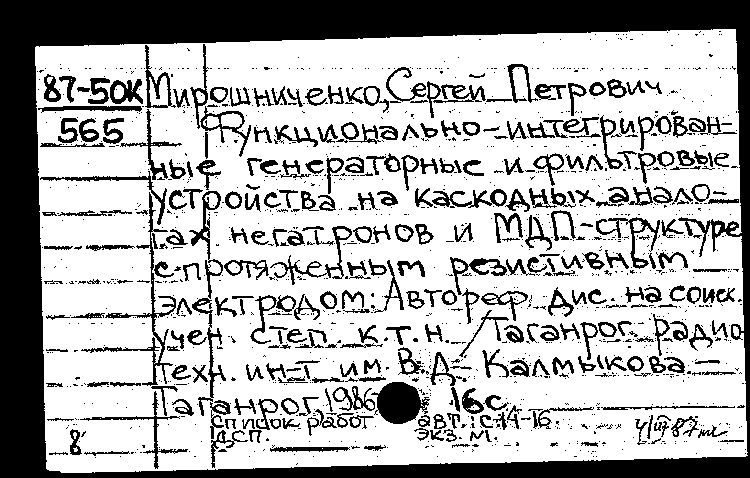 87-50К Мирошниченко, Сергей Петрович
565 Функционально-интегрирован-
ные генераторные и фильтровые
устройства на каскодных анало-
гах негатронов и МДП-структуре
с протяженным резистивным
электродом: Автореф. дис. на соиск.
учен. степ. к.т.н. / Таганрог. радио
техн. ин-т им. В.Д. Калмыкова. —
Таганрог, 1986 16с.
Список работ авт.: с.14-16.
8 Д.С.П. экз. м.